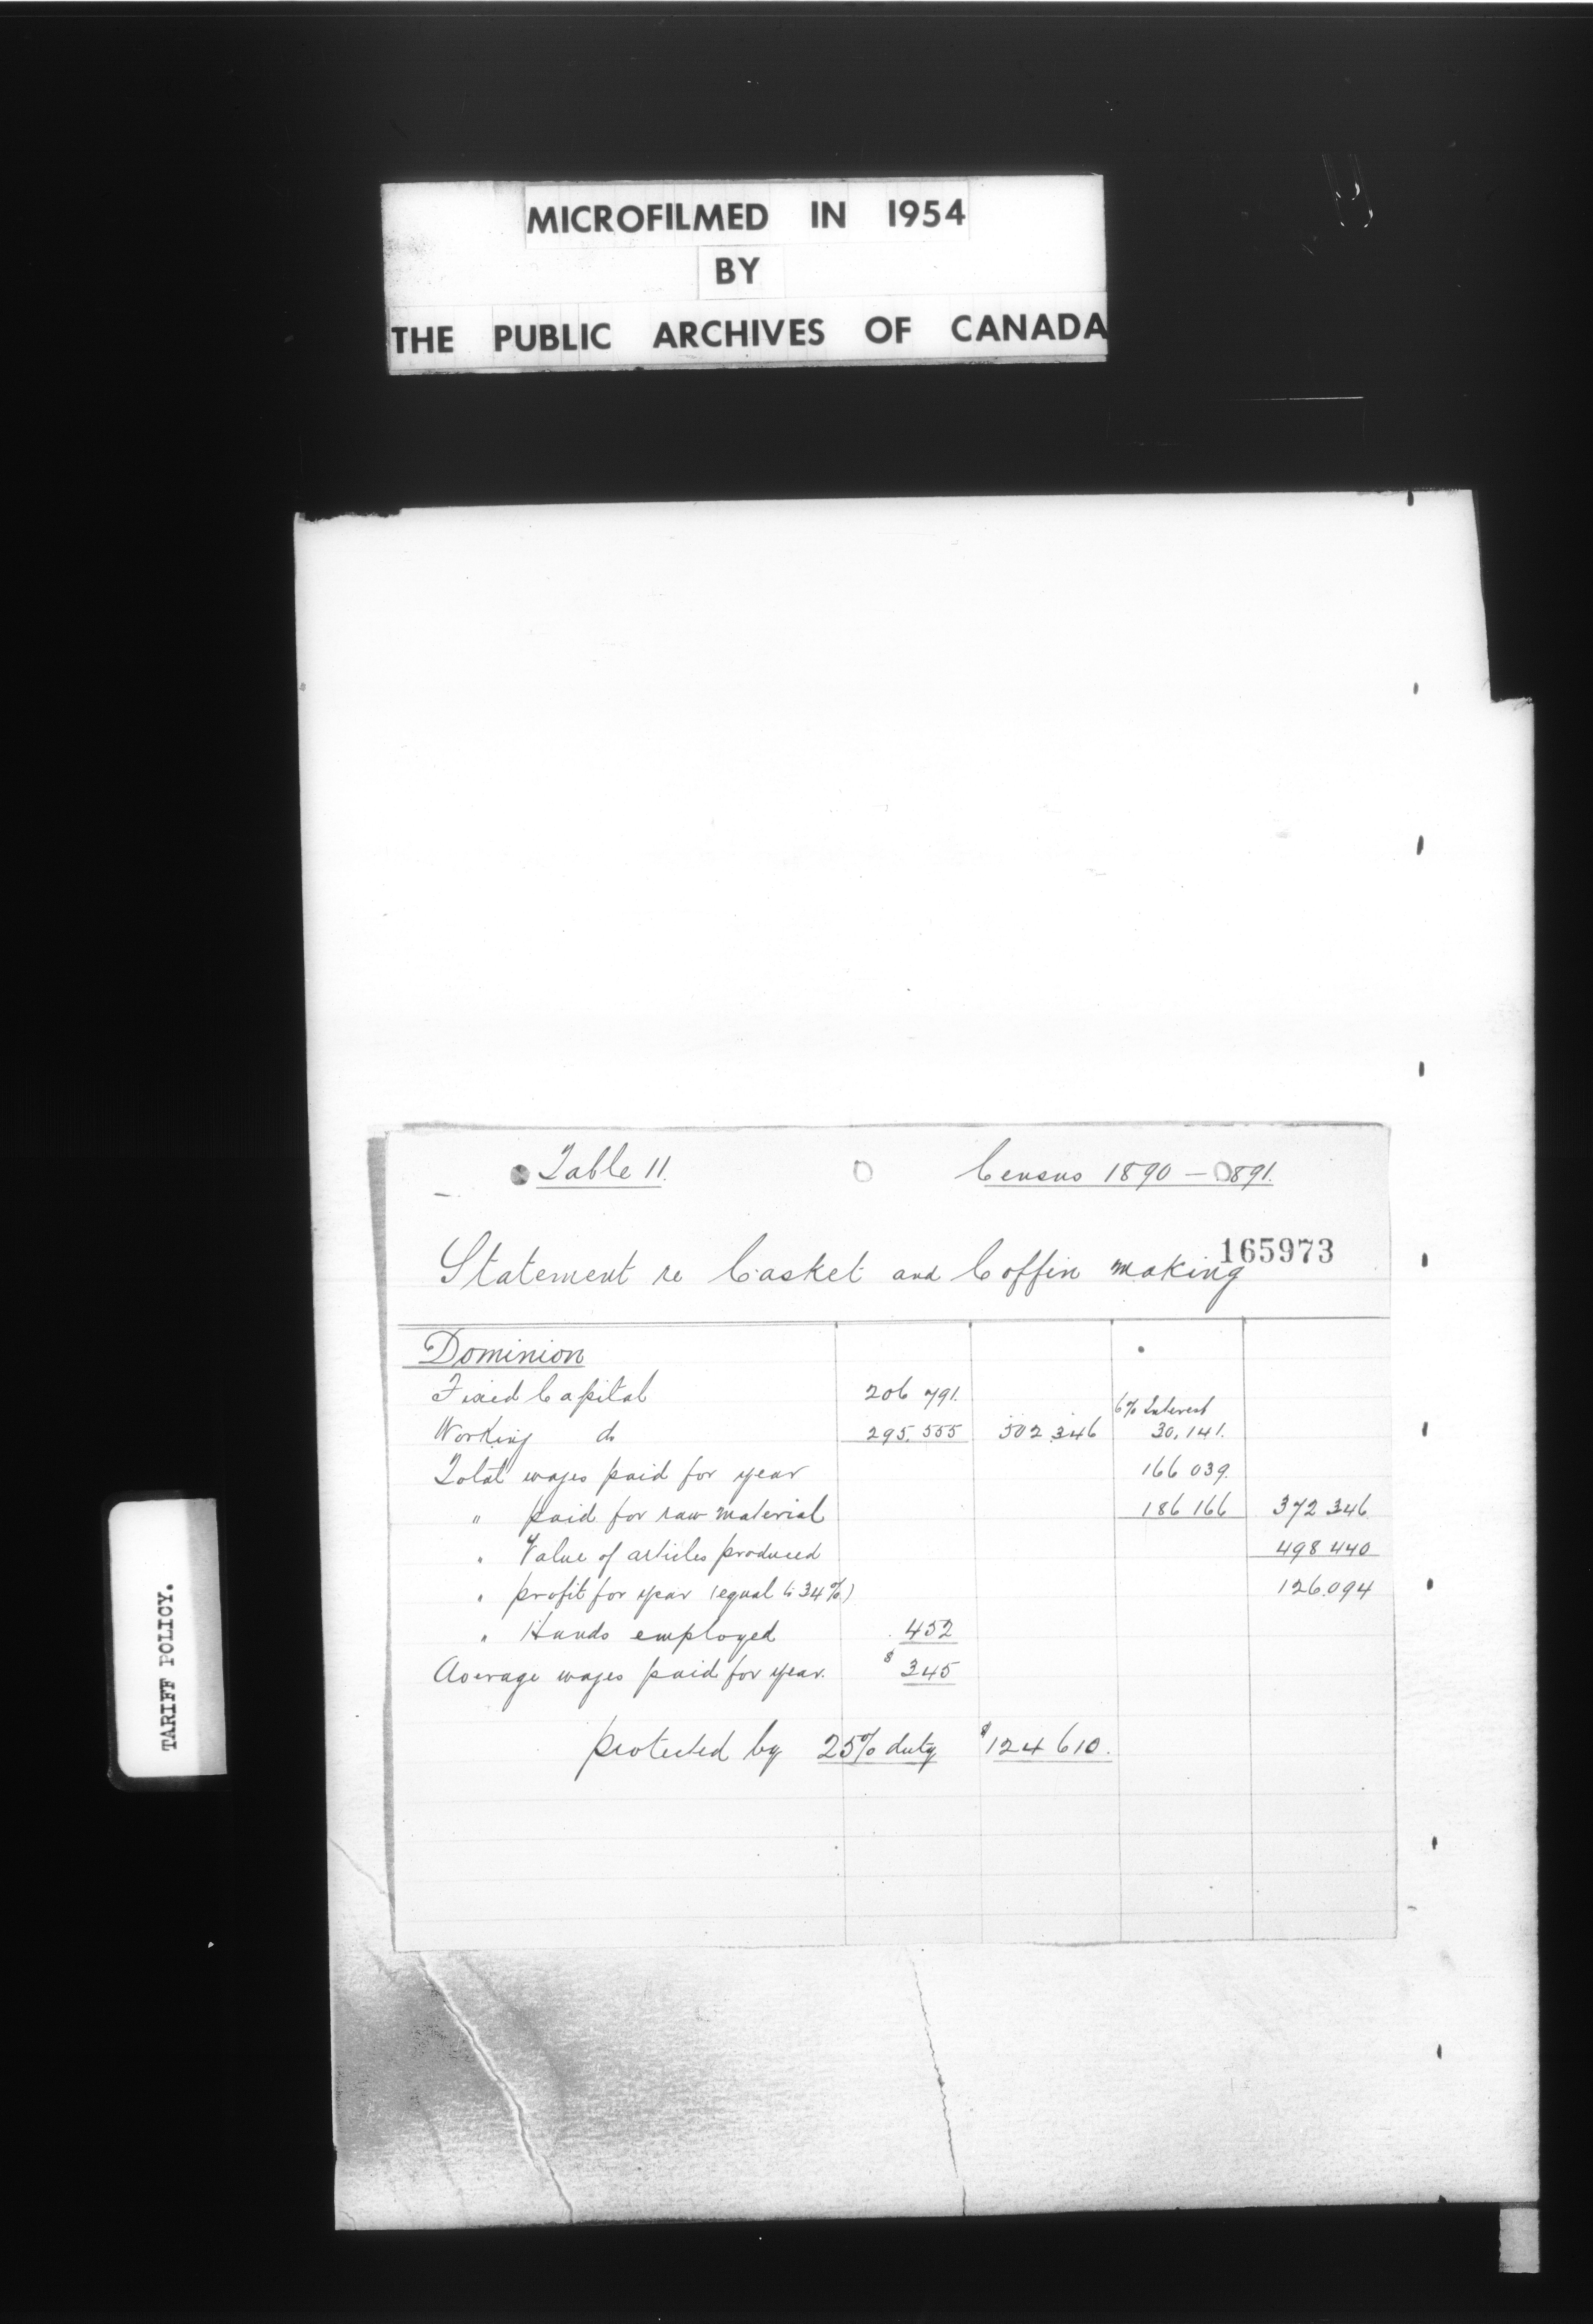 MICROFILMED IN 1954
BY
THE PUBLIC ARCHIVES OF CANADA
TARIFF POLICY.
Table 11. Census 1890 – 1891.
165973
Statement re Casket and Coffin making
Dominion
Fixed Capital 206 791.
6% Interest
Working do 295.555 502.346 30,141.
Total wages paid for year 166 039.
" paid for raw material 186 166 372 346
" Value of articles produced 498 440
" profit for year (equal to 34%) 126.094
" Hands employed 452
Average wages paid for year. $345
protected by 25% duty $124 610.